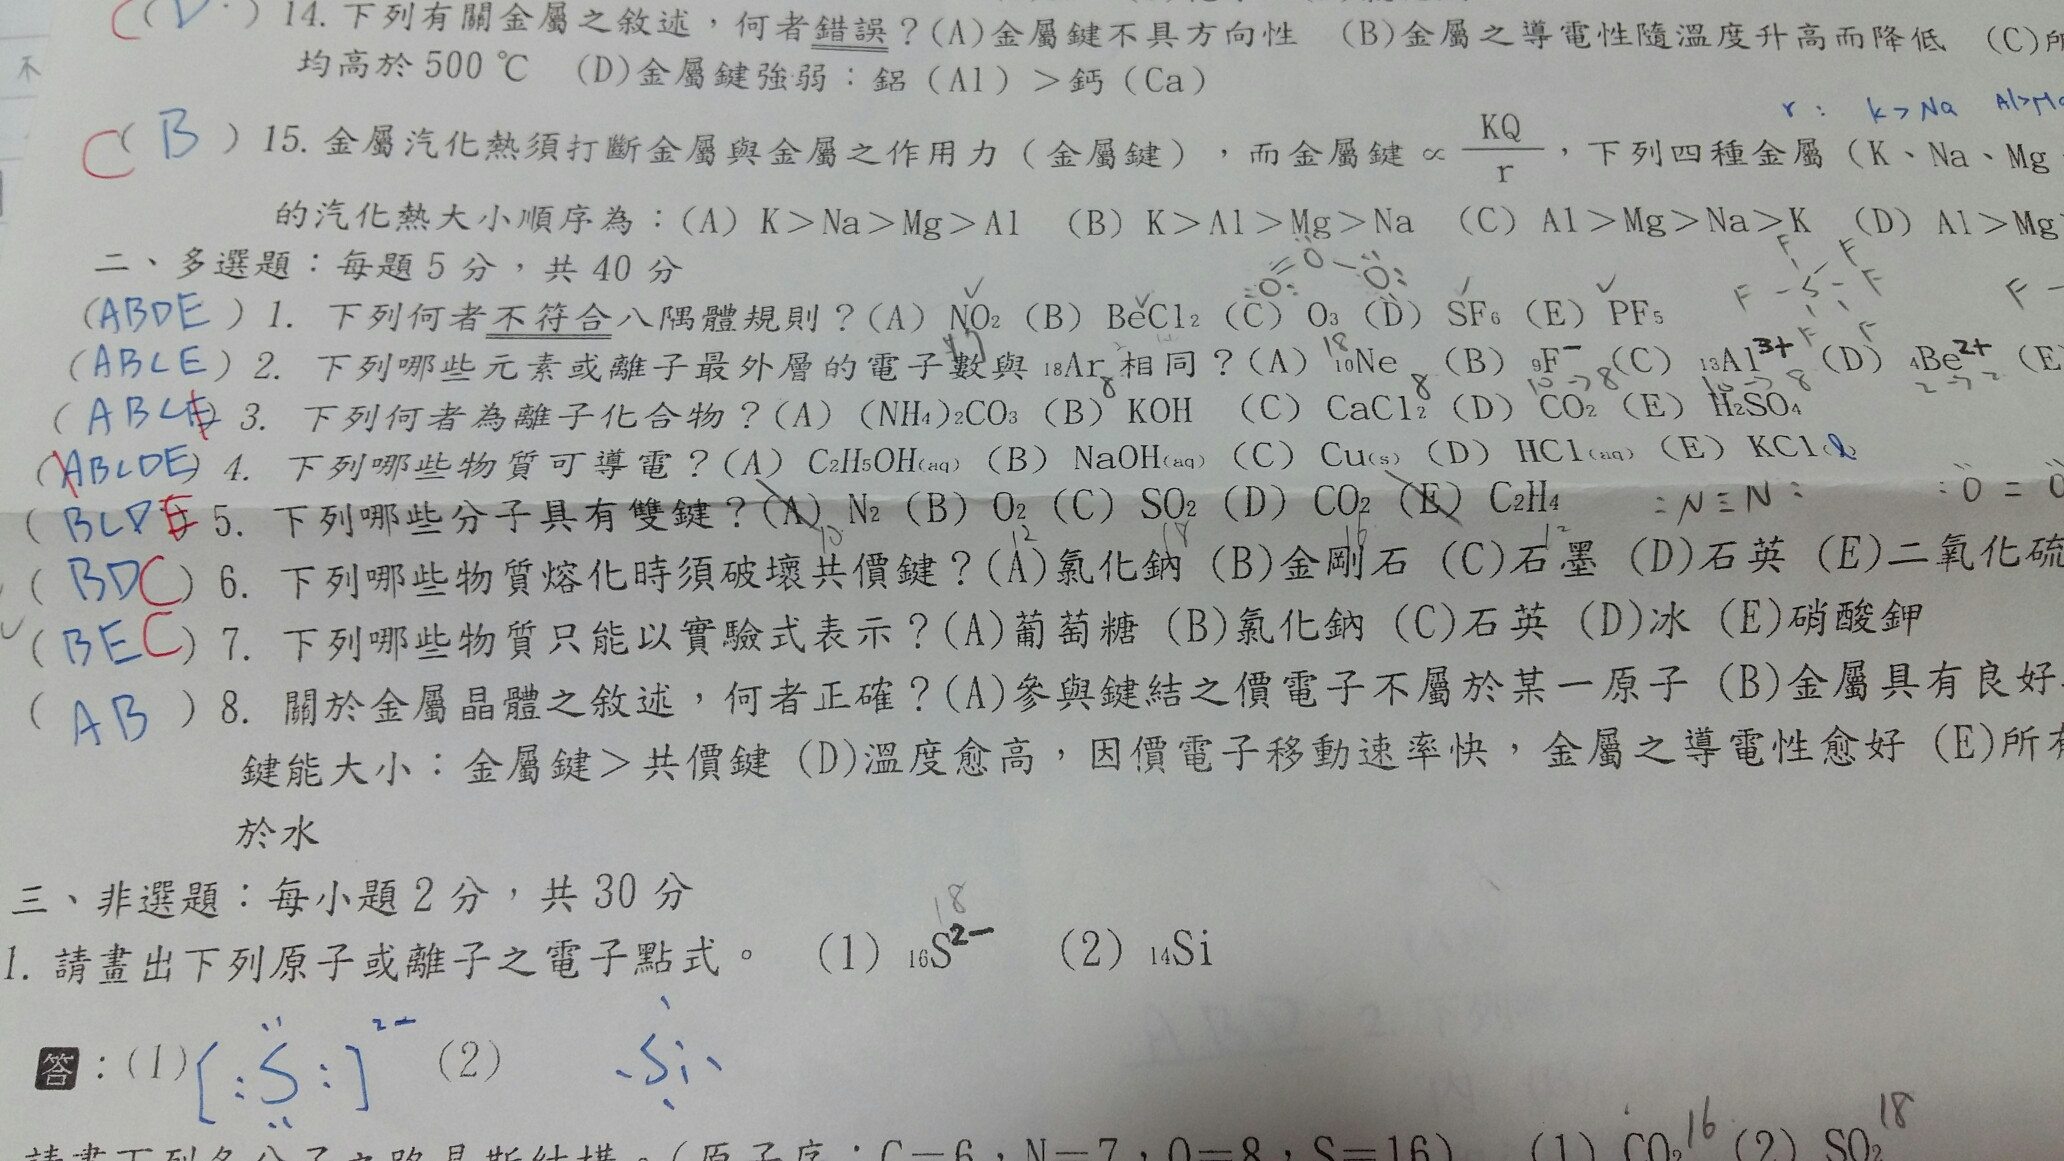 C(D) 14. 下列有關金屬之敘述，何者錯誤？(A)金屬鍵不具方向性 (B)金屬之導電性隨溫度升高而降低 (C)所
均高於 500 ℃ (D)金屬鍵強弱：鋁（Al）＞鈣（Ca）
r： K＞Na Al＞Mg
C(B) 15. 金屬汽化熱須打斷金屬與金屬之作用力（金屬鍵），而金屬鍵 ∝ KQ/r，下列四種金屬（K、Na、Mg
的汽化熱大小順序為：(A) K＞Na＞Mg＞Al (B) K＞Al＞Mg＞Na (C) Al＞Mg＞Na＞K (D) Al＞Mg
二、多選題：每題 5 分，共 40 分
(ABDE) 1. 下列何者不符合八隅體規則？(A) NO₂ (B) BeCl₂ (C) O₃ (D) SF₆ (E) PF₅
(ABCE) 2. 下列哪些元素或離子最外層的電子數與 ₁₈Ar 相同？(A) ₁₀Ne (B) ₉F⁻ (C) ₁₃Al³⁺ (D) ₄Be²⁺ (E)
(ABCE) 3. 下列何者為離子化合物？(A) (NH₄)₂CO₃ (B) KOH (C) CaCl₂ (D) CO₂ (E) H₂SO₄
(ABCDE) 4. 下列哪些物質可導電？(A) C₂H₅OH(aq) (B) NaOH(aq) (C) Cu(s) (D) HCl(aq) (E) KCl(l)
(BCDE) 5. 下列哪些分子具有雙鍵？(A) N₂ (B) O₂ (C) SO₂ (D) CO₂ (E) C₂H₄ :N≡N: :O=O
(BDC) 6. 下列哪些物質熔化時須破壞共價鍵？(A)氯化鈉 (B)金剛石 (C)石墨 (D)石英 (E)二氧化硫
(BEC) 7. 下列哪些物質只能以實驗式表示？(A)葡萄糖 (B)氯化鈉 (C)石英 (D)冰 (E)硝酸鉀
(AB) 8. 關於金屬晶體之敘述，何者正確？(A)參與鍵結之價電子不屬於某一原子 (B)金屬具有良好
鍵能大小：金屬鍵＞共價鍵 (D)溫度愈高，因價電子移動速率快，金屬之導電性愈好 (E)所有
於水
三、非選題：每小題 2 分，共 30 分
1. 請畫出下列原子或離子之電子點式。 (1) ₁₆S²⁻ 18 (2) ₁₄Si
答：(1) [:S:]²⁻ (2) ·Si·
請畫下列各分子之路易斯結構。(原子序：C＝6，N＝7，O＝8，S＝16) (1) CO₂ 16 (2) SO₂ 18